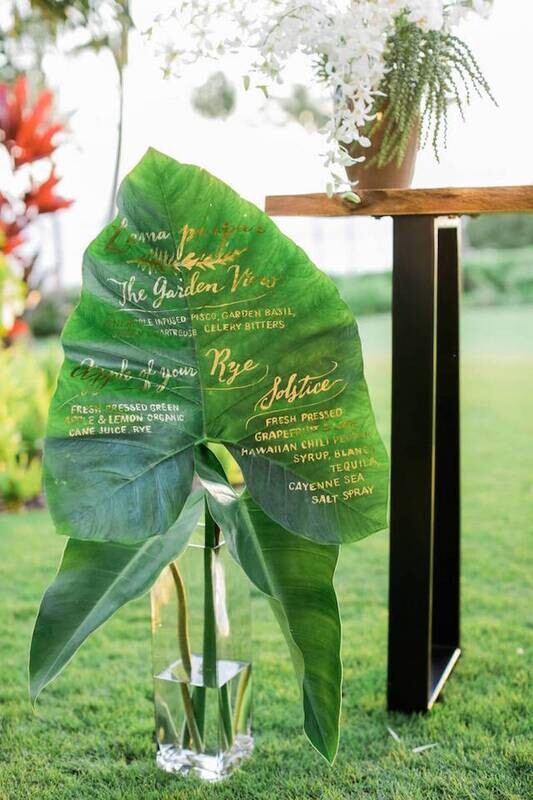 The Garden View
INFUSED PISCO, GARDEN BASIL,
CHARTREUSE CELERY BITTERS
Apple of your Rye
FRESH PRESSED GREEN
APPLE & LEMON ORGANIC
CANE JUICE, RYE
Solstice
FRESH PRESSED
GRAPEFRUIT & LIME
HAWAIIAN CHILI PEPPER
SYRUP, BLANCO
TEQUILA,
CAYENNE SEA
SALT SPRAY